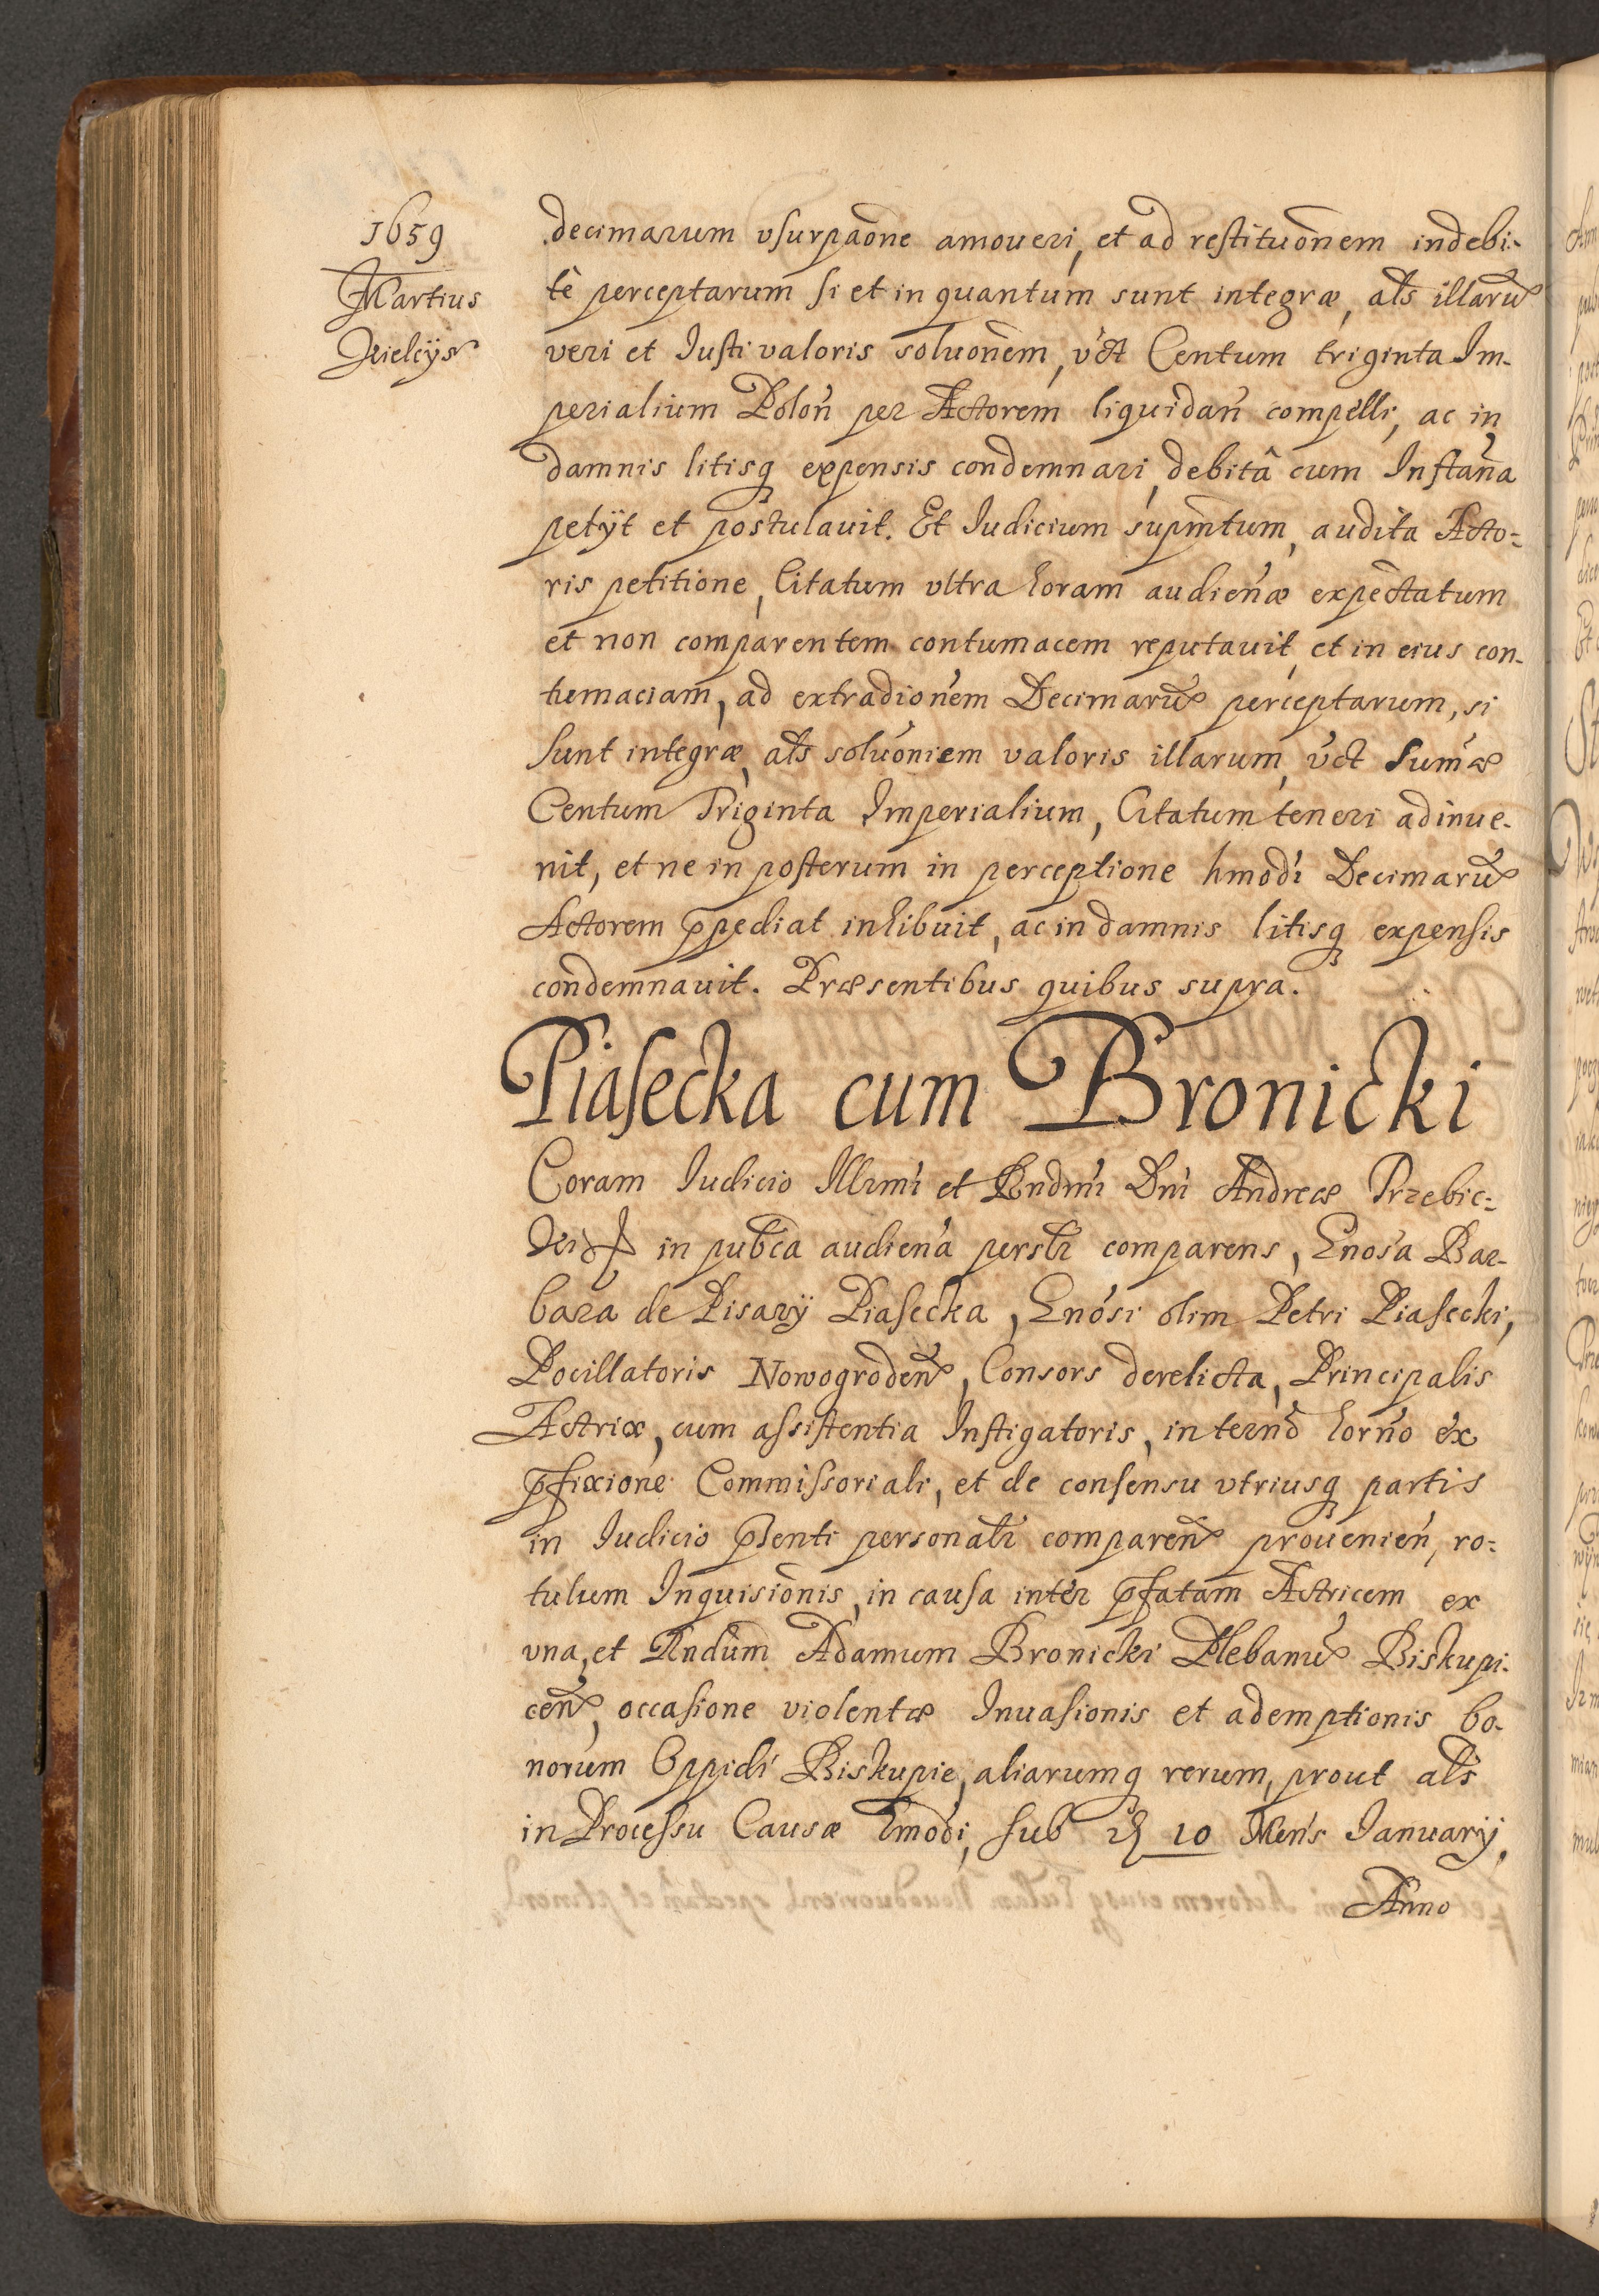 1659
Martius
Kielcÿs
decimarum vsurpaõne amoueri, et ad restituõnem indebi-
tè perceptarum si et in quantum sunt integræ, als illarũ
veri et Iusti valoris soluonem, vct Centum triginta Im-
perialium Poloñ per Actorem liquidañ compelli, ac in
damnis litisq expensis condemnari, debitâ cum Instaña
petÿt et postulauit. Et Iudicium supmtum, audita Acto=
ris petitione, Citatum vltra horam audieñæ expectatum
et non comparentem contumacem reputauit, et in eius con-
tumaciam, ad extradionem Decimarũ perceptarum, si
sunt integræ, als soluoniem valoris illarum, vct sumæ
Centum Triginta Imperialium, Citatum teneri adinue-
nit, et ne in posterum in perceptione hmodi Decimarũ
Actorem ppediat inhibuit, ac in damnis litisq expensis
condemnauit. Præsentibus quibus supra.
Piasecka cum Bronicki
Coram Iudicio Illrmi et Rndmi Dni Andreæ Trzebic=
ki in pubca audieña persLr comparens, Gnosa Bar-
bara de Pisarÿ Piasecka, Gnosi olim Petri Piasecki,
Pocillatoris Nowogrodeñ, Consors derelicta, Principalis
Actrix, cum assistentia Instigatoris, in termo horno ex
pfixione Commissoriali, et de consensu vtriusq partis
in Iudicio psenti personalr compareñ proueniеñ, ro=
tulum Inquisionis, in causa inter pfatam Actricem ex
vna, et Rndum Adamum Bronicki Plebanũ Biskupi-
ceñ, occasione violentæ Inuasionis et ademptionis bo-
norum Oppidi Biskupie, aliarumq rerum, prout als
in Processu Causæ hmodi, sub 10 Mens Ianuarÿ,
Anno